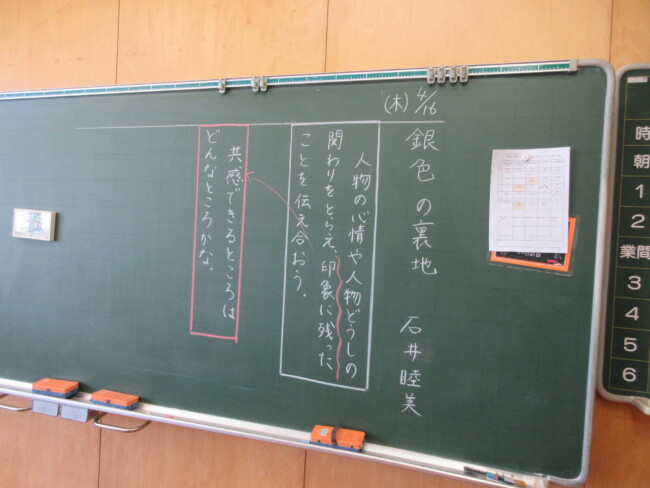 4/16
(木)
銀色の裏地 石井睦美
人物の心情や人物どうしの
関わりをとらえ、印象に残った
ことを伝え合おう。
共感できるところは
どんなところかな。
時
朝
1
2
業間
3
4
5
6